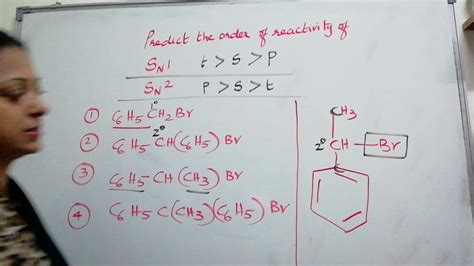 Predict the order of reactivity of
SN1 t > S > P
SN2 P > S > t
① C6H5 CH2 Br 1°
② C6H5 CH(C6H5) Br 2°
③ C6H5 CH (CH3) Br
④ C6H5 C(CH3)(C6H5) Br
CH3
2° CH — Br